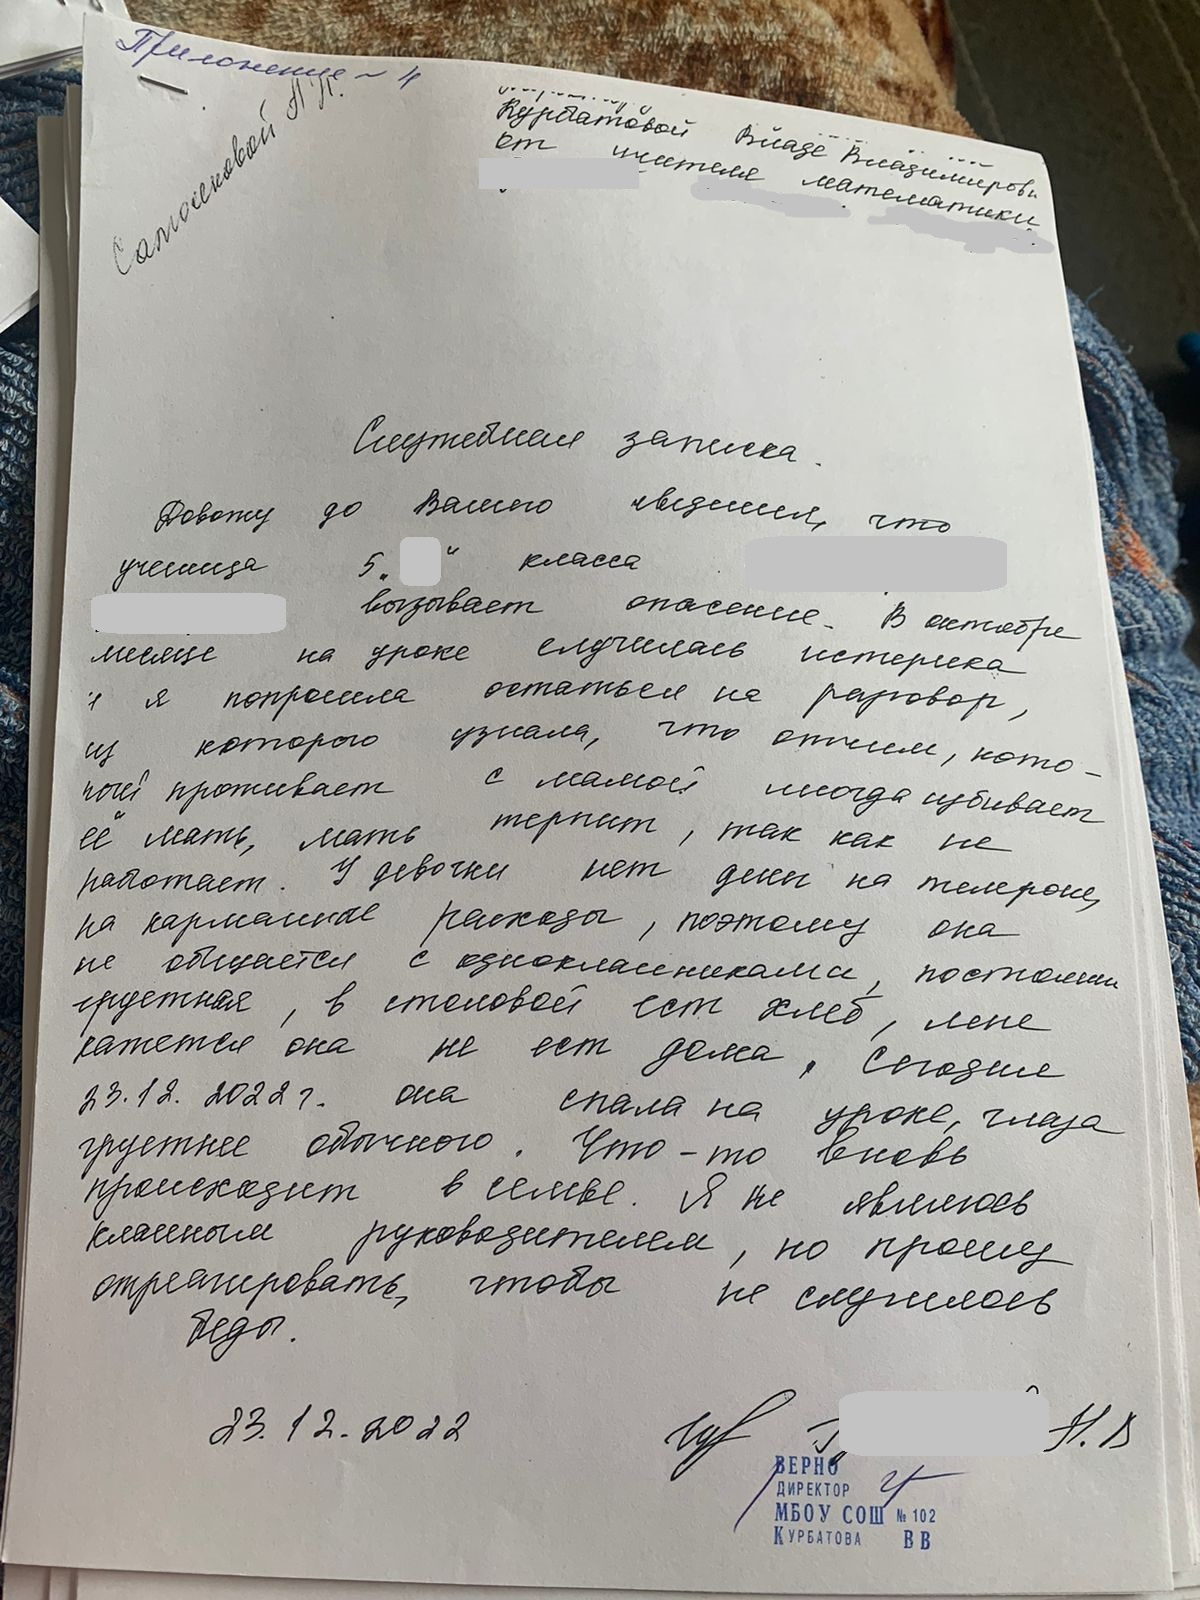 Приложение ~ 4
Сапожковой Н.Н.
Курбатовой Владе Владимировн
от учителя математики
Служебная записка.
Довожу до Вашего сведения, что
ученица 5 „ “ класса
вызывает опасение. В октябре
месяце на уроке случилась истерика
и я попросила остаться на разговор,
из которого узнала, что отчим, кото-
рый проживает с мамой иногда избивает
её мать, мать терпит, так как не
работает. У девочки нет денег на телефоне,
на карманные расходы, поэтому она
не общается с одноклассниками, постоянно
грустная, в столовой ест хлеб, мне
кажется она не ест дома. Сегодня
23.12.2022 г. она спала на уроке, глаза
грустнее обычного. Что-то вновь
происходит в семье. Я не являюсь
классным руководителем, но прошу
отреагировать, чтобы не случилось
беды.
23.12.2022 Н.В
ВЕРНО
ДИРЕКТОР
МБОУ СОШ № 102
КУРБАТОВА ВВ